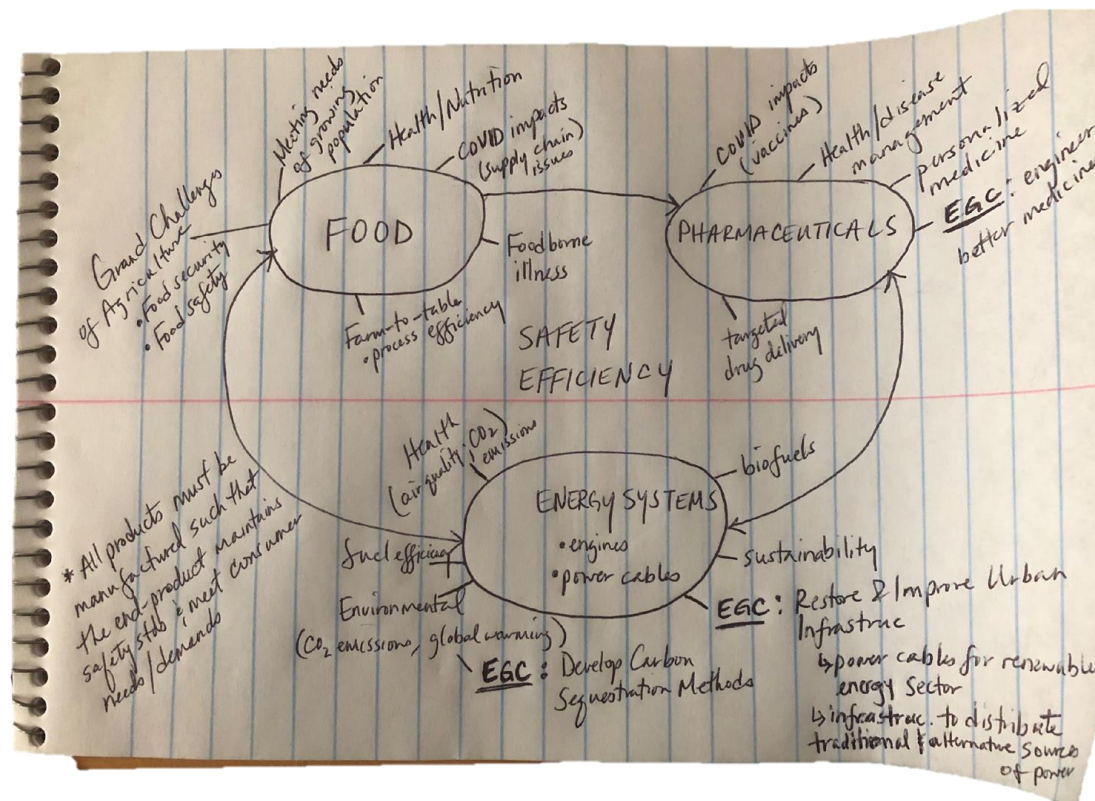 Meeting needs
of growing
population
Health/Nutrition
COVID impacts
(supply chain)
issues
Grand Challenges
of Agriculture
• Food security
• Food safety
FOOD
Foodborne
illness
Farm-to-table
• process efficiency
COVID impacts
(vaccines)
Health/disease
management
personalized
medicine
EGC: engineer
better medicine
PHARMACEUTICALS
targeted
drug delivery
SAFETY
EFFICIENCY
Health
(air quality, CO2)
emissions
ENERGY SYSTEMS
• engines
• power cables
biofuels
sustainability
fuel efficiency
Environmental
(CO2 emissions, global warming)
EGC: Develop Carbon
Sequestration Methods
EGC: Restore & Improve Urban
Infrastruc
↳ power cables for renewable
energy sector
↳ infrastruc. to distribute
traditional & alternative sources
of power
* All products must be
manufactured such that
the end-product maintains
safety stds & meet consumer
needs/demands